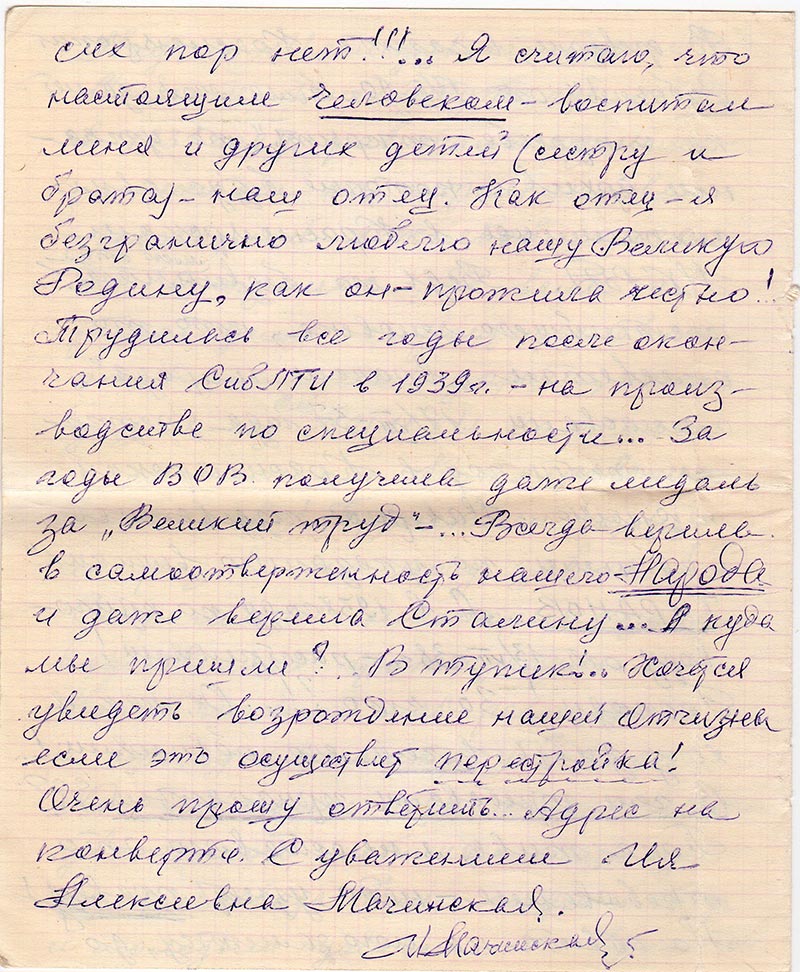 сих пор нет!!!... Я считаю, что
настоящим человеком – воспитал
меня и других детей (сестру и
брата) – наш отец. Как отец – я
безгранично люблю нашу Великую
Родину, как он – прожила честно!
Трудилась все годы после окон-
чания СибЛТИ в 1939 г. – на произ-
водстве по специальности... За
годы ВОВ. получила даже медаль
за „Великий труд" – ... Всегда верила
в самоотверженность нашего – Народа
и даже верила Сталину... А куда
мы пришли? В тупик!.. Хочется
увидеть возрождение нашей Отчизны
если это осуществит перестройка!
Очень прошу ответить... Адрес на
конверте. С уважением Ия
Алексеевна Мачинская.
И Мачинская